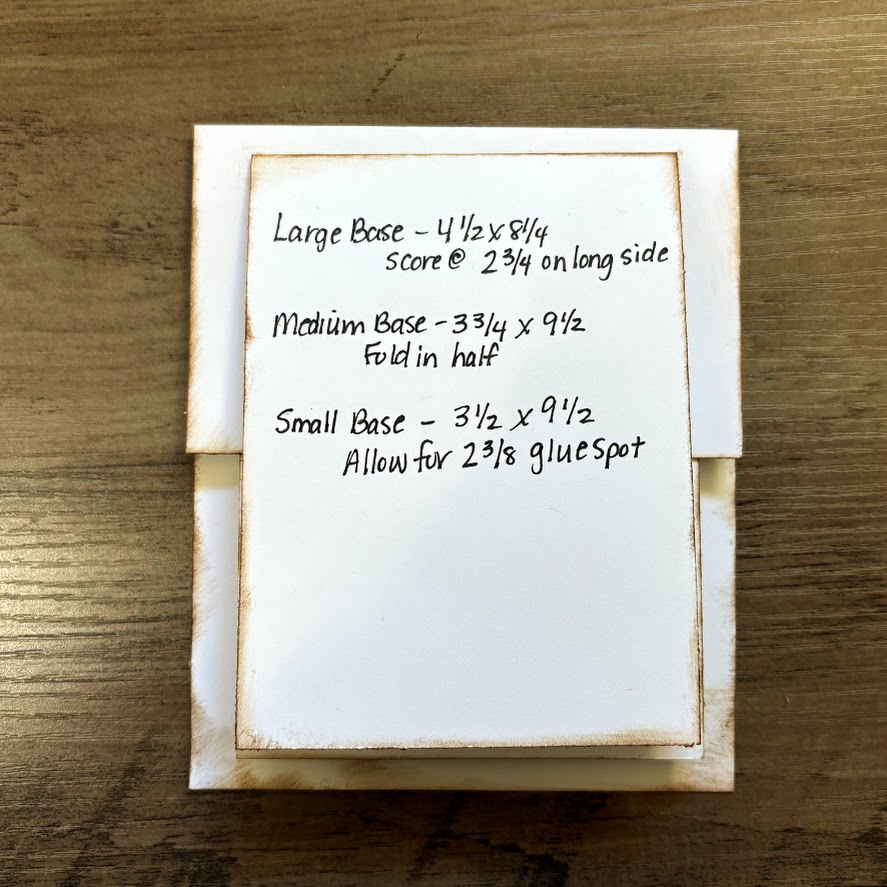 Large Base - 4 1/2 x 8 1/4
score @ 2 3/4 on long side
Medium Base - 3 3/4 x 9 1/2
Fold in half
Small Base - 3 1/2 x 9 1/2
Allow for 2 3/8 glue spot